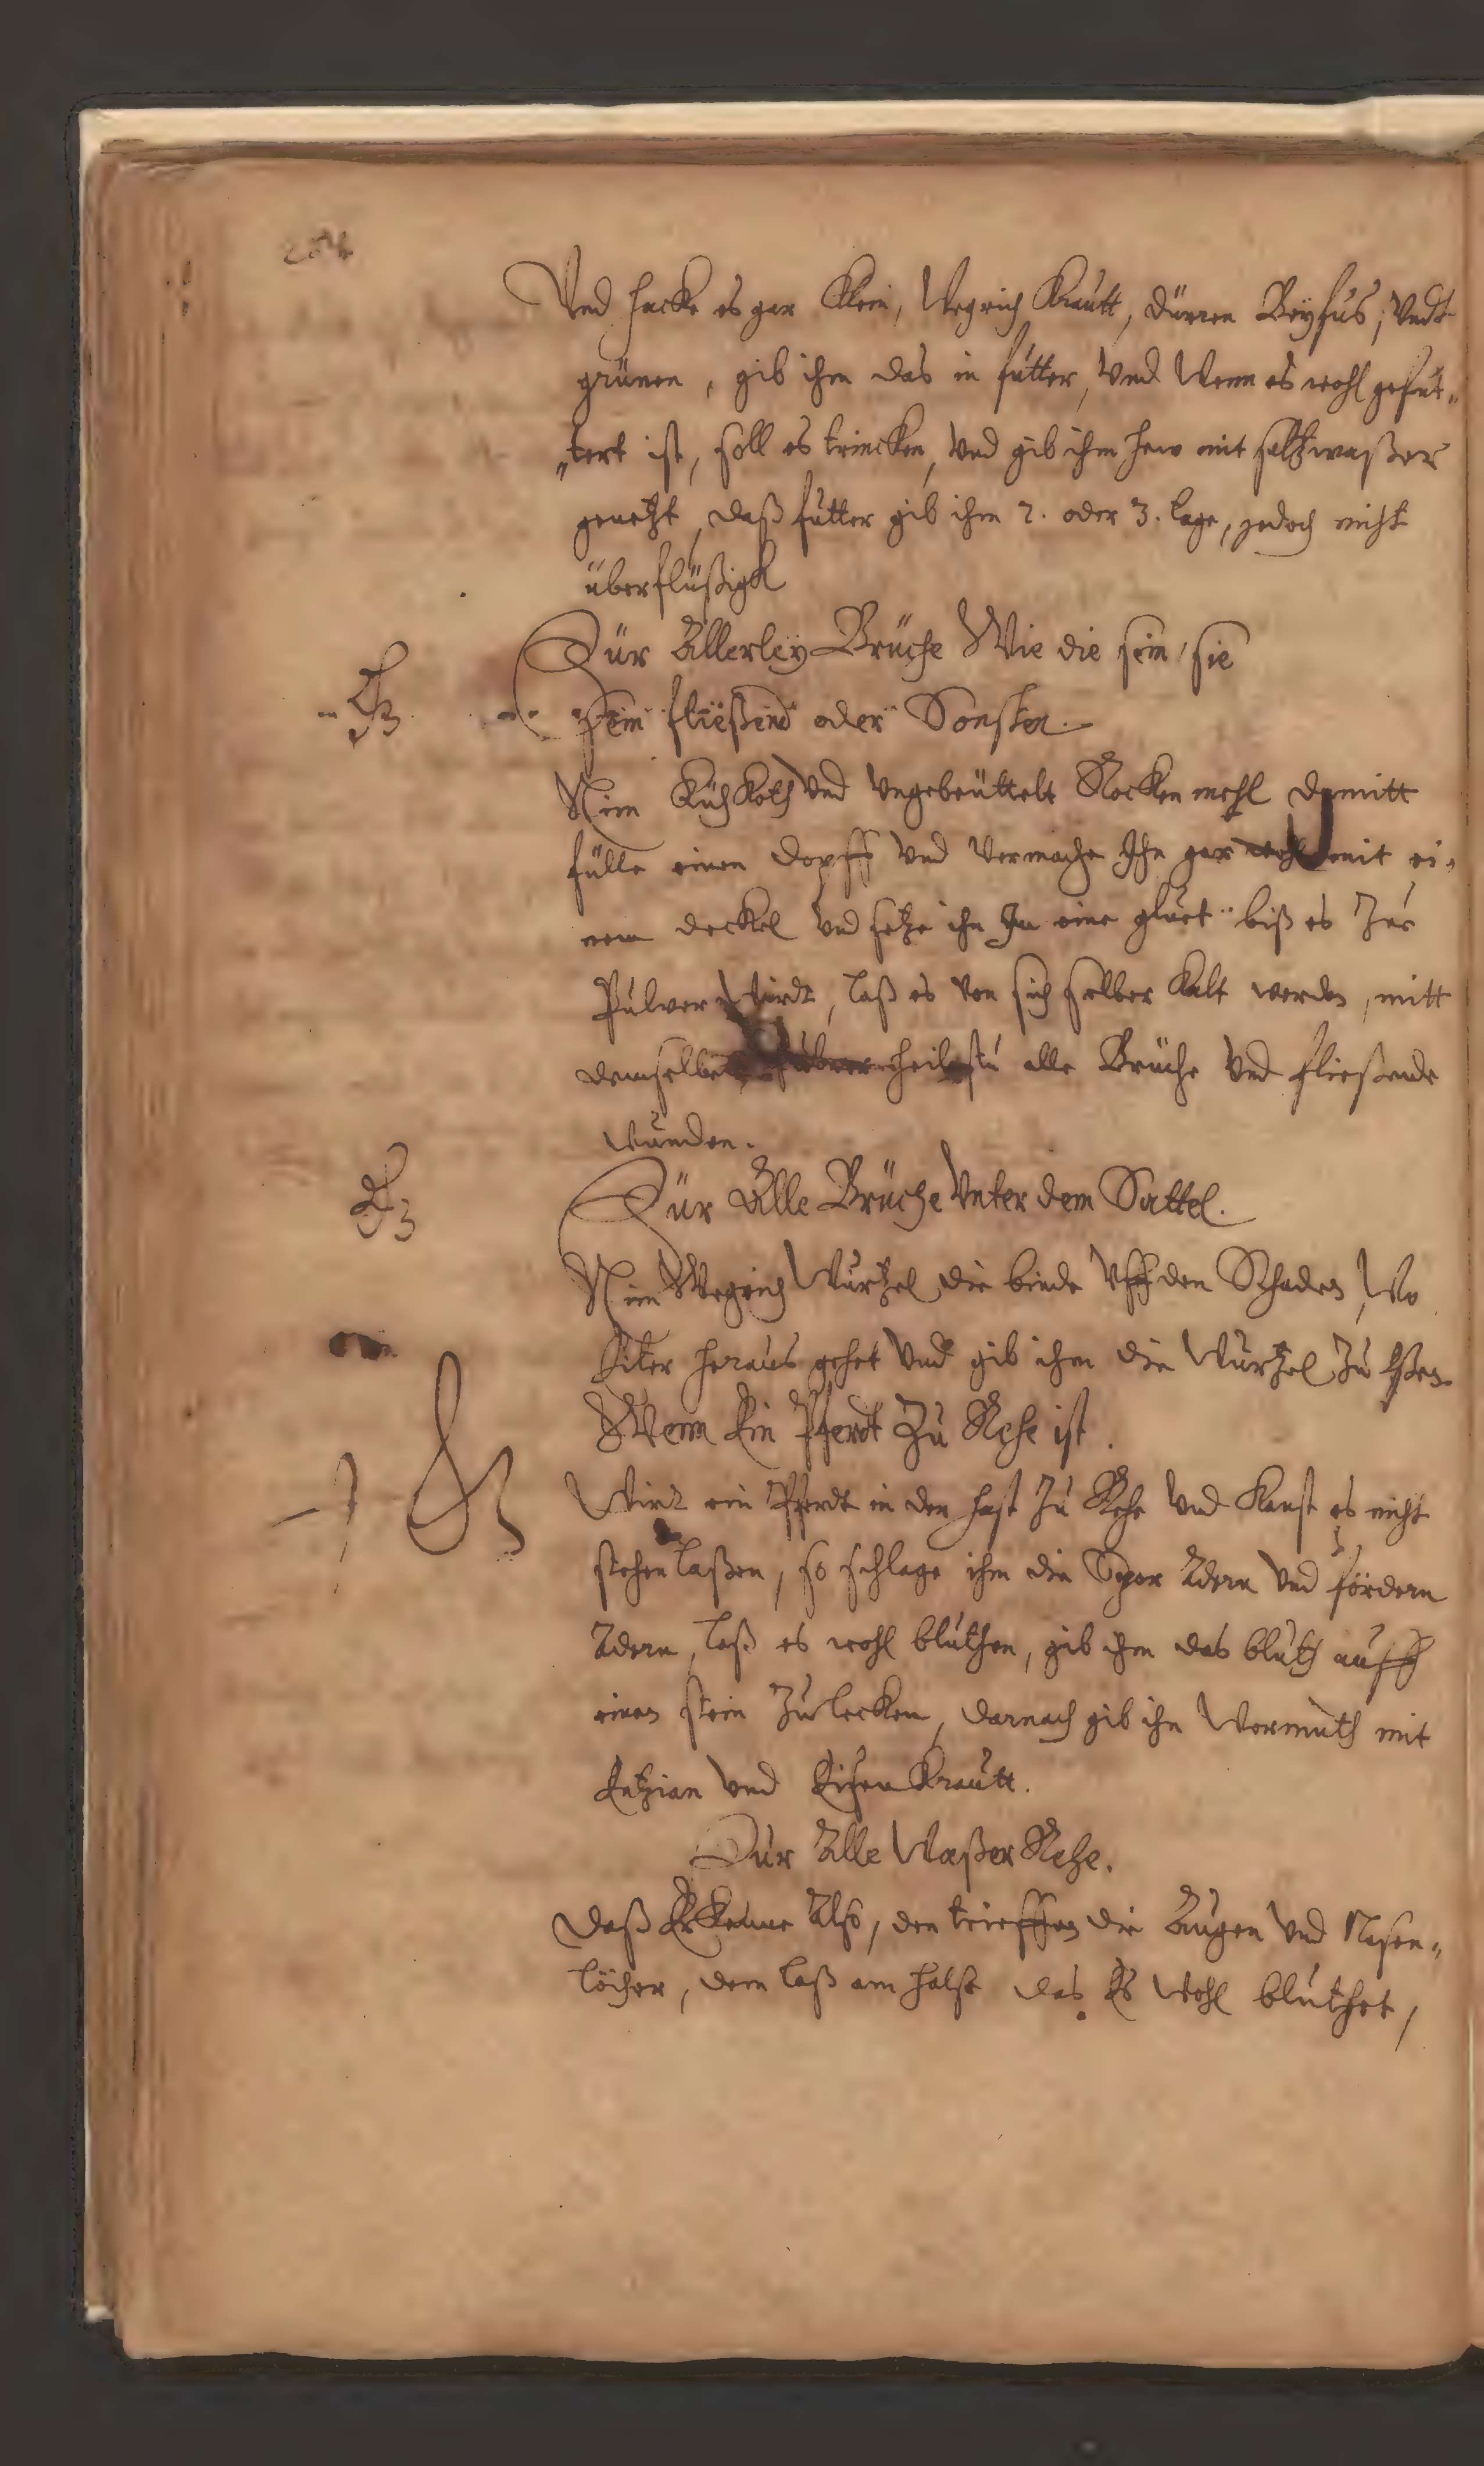 204
Vnd hacke es gar Klein, Wegrich Krautt, dürren Beyfus, Vndt
grünen, gib ihm das in futter, Vnd Wenn es wohl gefut„
„tert ist, soll es trincken, Vnd gib ihm hew mit saltzwaßer
genetzt, daß futter gib ihm 2. oder 3. tage, jedoch nicht
überflüßigk
Für Allerley Brüche Wie die sein, sie
sein fließend oder Sonsten.
Nim Kuh Koth Vnd Vngebeuttelt Rocken mehl damitt
fülle einen dopff Vnd Vermache Ihn gar wohl mit ei„
nem deckel Vnd setze ihn In eine gluet biß es Zue
Pulver Wirdt, laß es von sich selber Kalt werden, mitt
demselben Pulver heilestu alle Brüche Vnd fließende
wunden.
Für Alle Brüche Vnter dem Sattel.
Nim Wegrich Wurtzel die binde Vff den Schaden, Wo
Eiter heraus gehet Vnd gib ihm die Wurtzel Zu Eßen.
Wenn Ein Pferdt Zu Rehe ist.
Wirdt ein Pferdt in der hast Zu Rehe Vnd Kanst es nicht
stehen laßen, so schlage ihm die Spor Adern Vnd fördern
Adern, laß es wohl bluthen, gib ihm das bluth auff
einen stein Zu lecken, darnach gib ihn Wermuth mit
Entzian Vnd Eisen Krautt.
Für Alle Waßer Rehe.
Daß Erkenne Also, den trieffen die Augen Vnd Nasen„
löcher, dem laß am halse das Es Wohl bluthet,